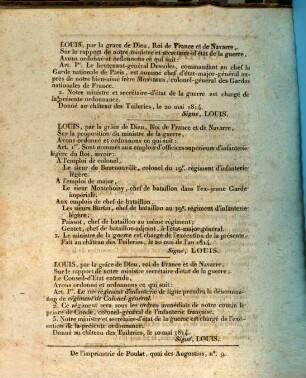 LOUIS, par la grace de Dieu, Roi de France et de Navarre,
Sur le rapport de notre ministre et secrétaire-d'état de la guerre,
Avons ordonné et ordonnons ce qui suit:
Art. Iᵉʳ. Le lieutenant-général Dessoles, commandant en chef la
Garde nationale de Paris, est nommé chef d'état-major-général au-
près de notre bien-aimé frère Monsieur, colonel-général des Gardes
nationales de France.
2. Notre ministre et secrétaire-d'état de la guerre est chargé de
la présente ordonnance.
Donné au château des Tuileries, le 20 mai 1814.
Signé, LOUIS.
LOUIS, par la grâce de Dieu, Roi de France et de Navarre,
Sur la proposition du ministre de la guerre,
Avons ordonné et ordonnons ce qui suit:
Art. 1ᵉʳ. Sont nommés aux emplois d'officiers supérieurs d'infanterie
légère du Roi, savoir:
A l'emploi de colonel,
Le sieur de colonel du 19ᵉ. régiment d'infanterie
légère;
A l'emploi de major,
Le sieur chef de bataillon dans l'ex-jeune Garde
impériale.
Aux emplois de chef de bataillon,
Les sieurs chef de bataillon au 19ᵉ. régiment d'infanterie
légère;
chef de bataillon au même régiment;
chef de bataillon-adjoint, à l'état-major-général.
2. Le ministre de la guerre est chargé de l'exécution de la présente.
Fait au château des Tuileries, le 20 mai de l'an 1814.
Signé, LOUIS.
LOUIS, par la grâce de Dieu, roi de France et de Navarre,
Sur le rapport de notre ministre secrétaire d'état de la guerre;
Le Conseil-d'Etat entendu,
Avons ordonné et ordonnons ce qui suit:
Art. 1ᵉʳ. Le régiment d'infanterie de ligne prendra la dénomina-
tion de régiment de Colonel-général.
2. Ce régiment sera sous les ordres immédiats de notre cousin le
prince de Condé, colonel-général de l'infanterie française.
3. Notre ministre et secrétaire-d'état de la guerre est chargé de l'exé-
cution de la présente ordonnance.
Donné au château des Tuileries, le mai 1814.
Signé, LOUIS.
De l'imprimerie de Poulet, quai des Augustins, nᵒ. 9.